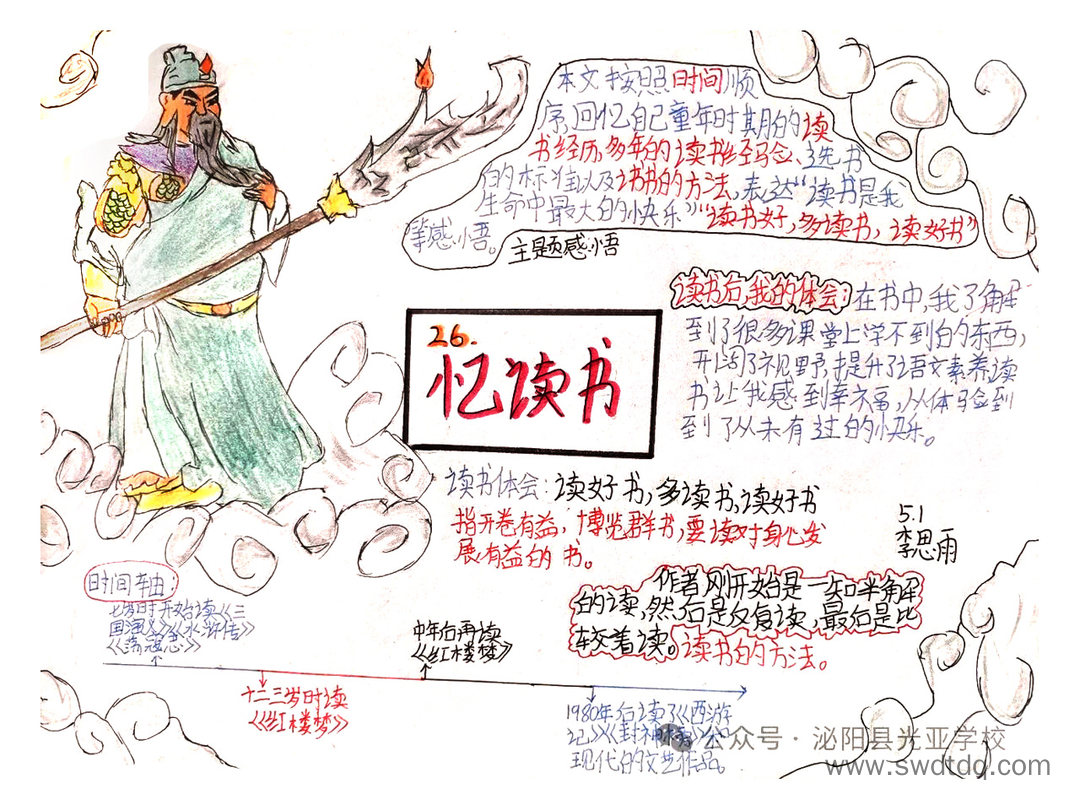 本文按照时间顺
序,回忆自己童年时期的读
书经历,多年的读书经验、选书
的标准以及读书的方法,表达“读书是我
生命中最大的快乐”“读书好,多读书,读好书”
等感悟。
主题感悟
读书后,我的体会:在书中,我了解
到了很多课堂上学不到的东西,
开阔了视野,提升了语文素养,读
书让我感到幸福,从体验到
到了从未有过的快乐。
26.
忆读书
读书体会:读好书,多读书,读好书
指开卷有益,博览群书,要读对身心发
展有益的书。
5.1
李思雨
作者刚开始是一知半解
的读,然后是反复读,最后是比
较着读。读书的方法。
时间轴:
七岁时开始读《三
国演义》《水浒传》
《荡寇志》
十二三岁时读
《红楼梦》
中年后再读
《红楼梦》
1980年后读了《西游
记》《封神榜》和
现代的文艺作品。
公众号·泌阳县光亚学校
www.swdtdq.com